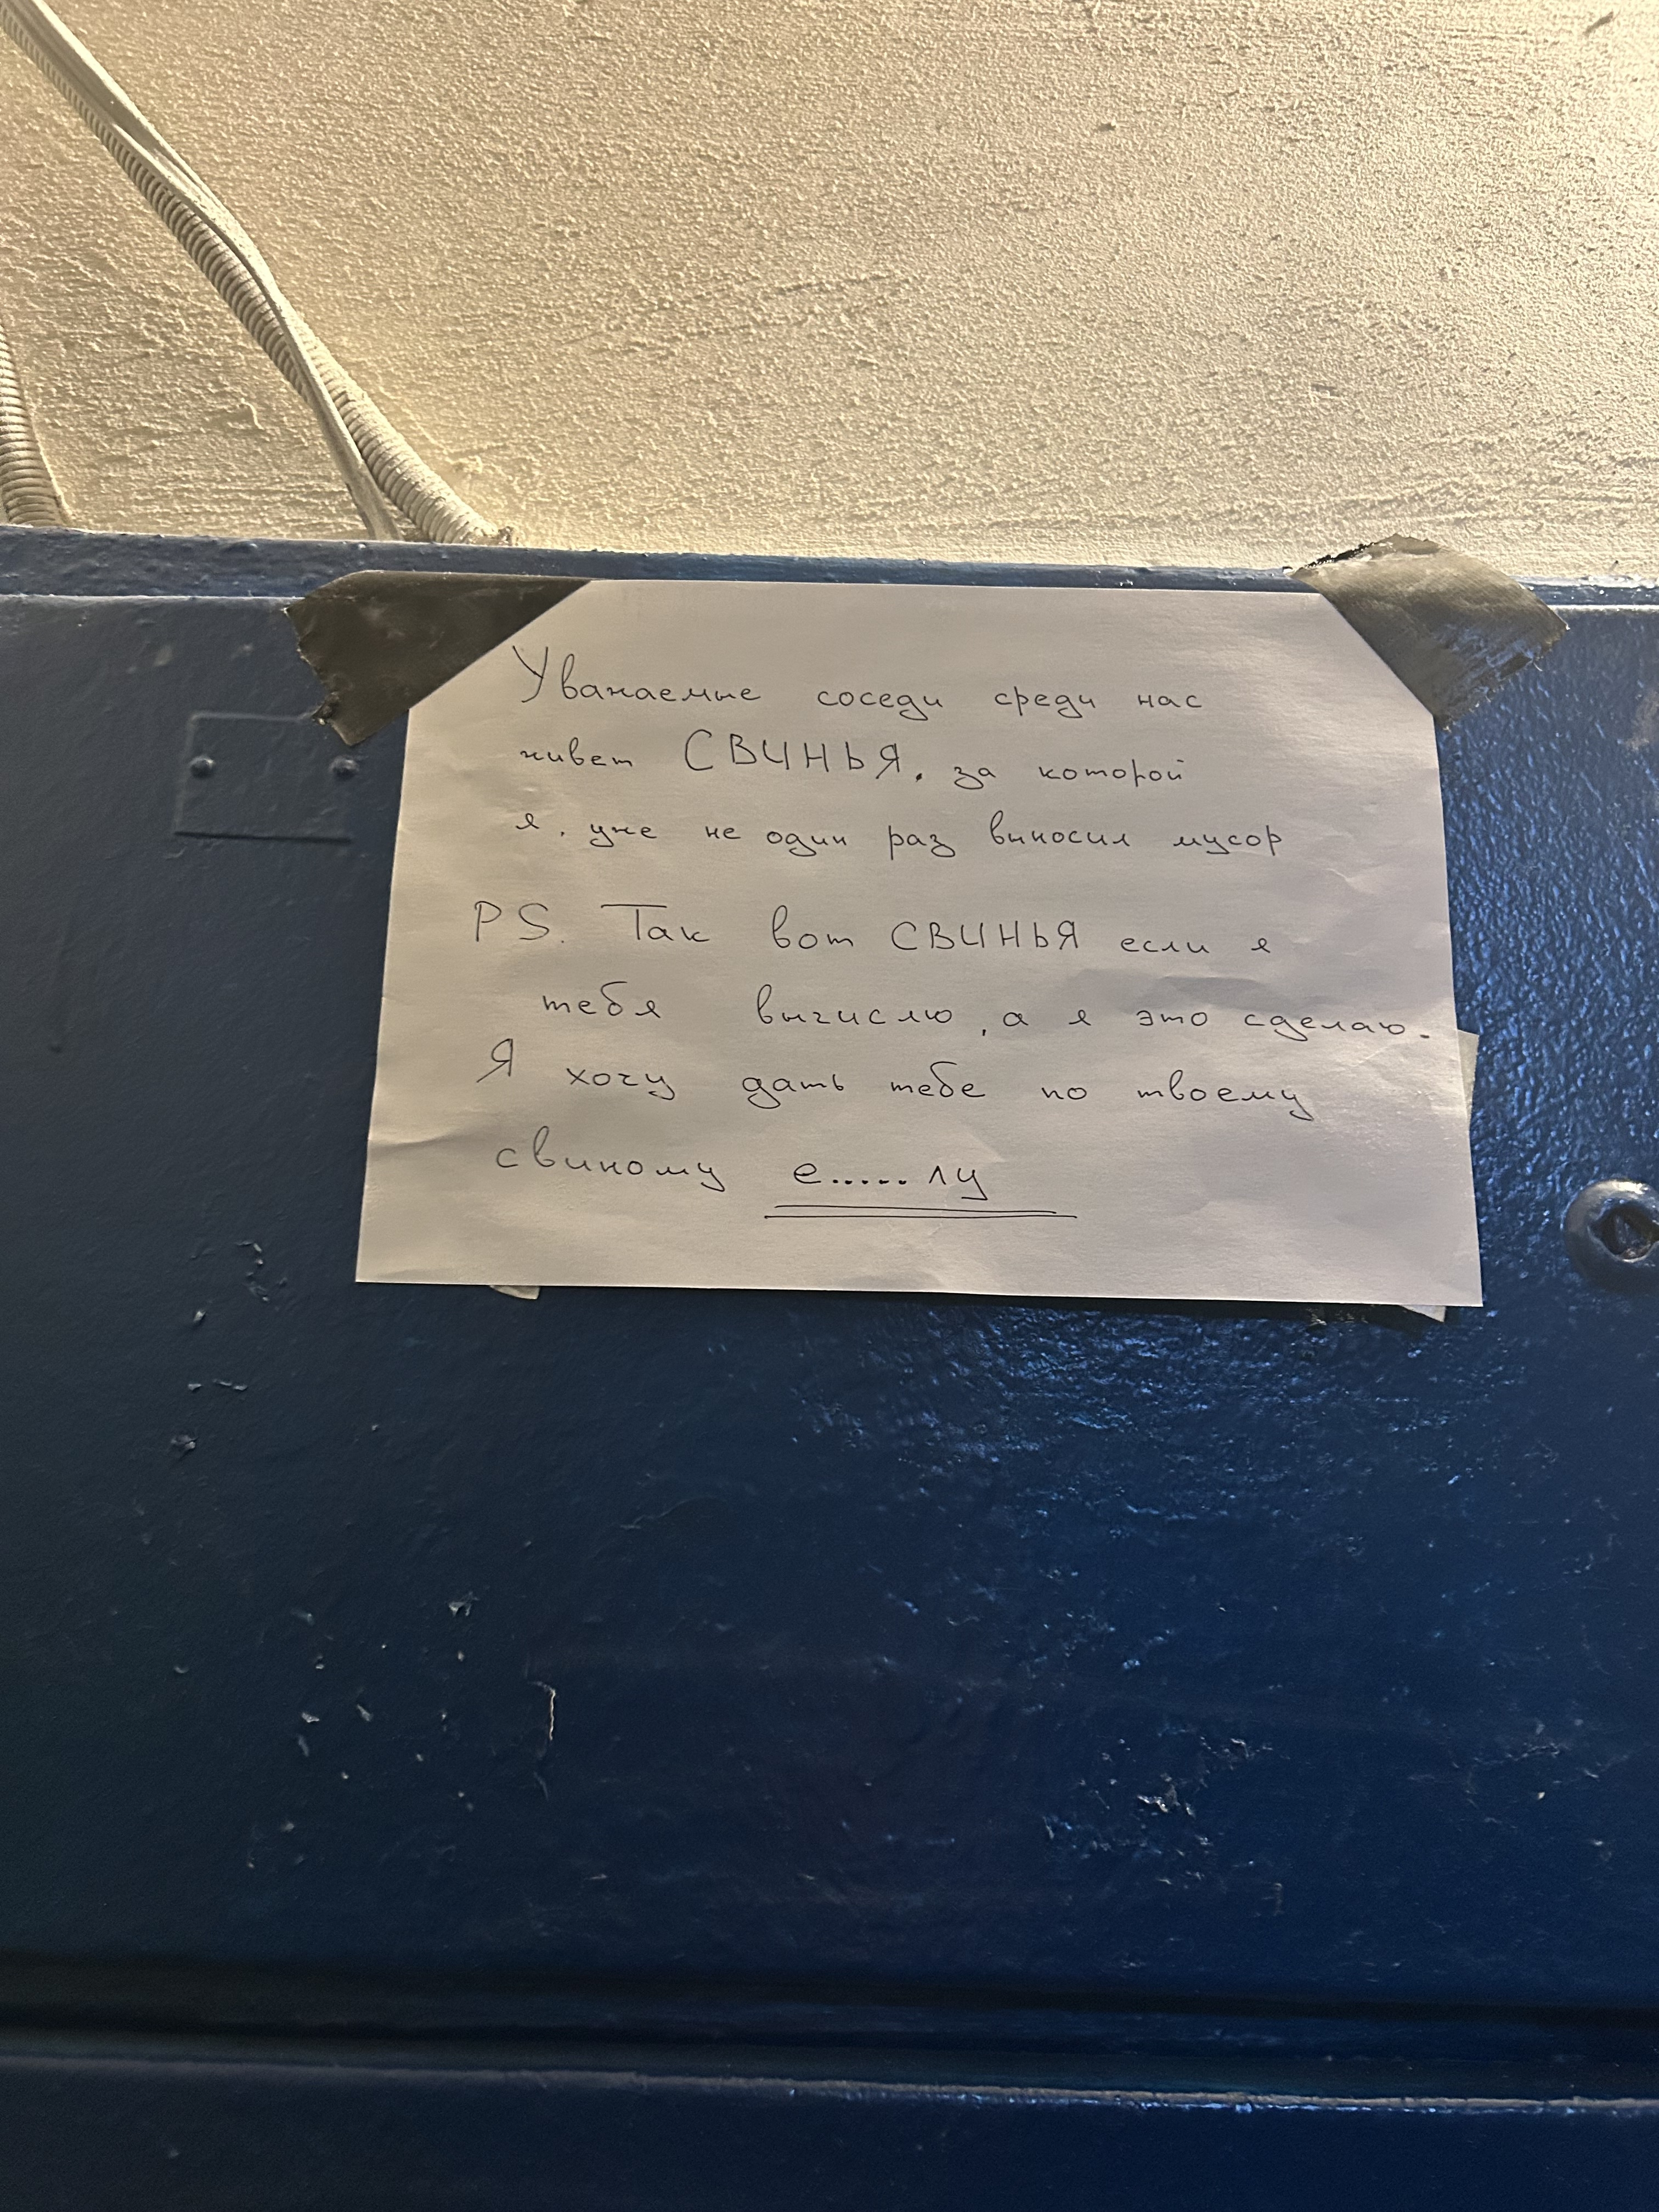 Уважаемые соседи среди нас
живет СВИНЬЯ, за которой
я, уже не один раз выносил мусор
PS. Так вот СВИНЬЯ если я
тебя вычислю, а я это сделаю.
Я хочу дать тебе по твоему
свиному е.....лу